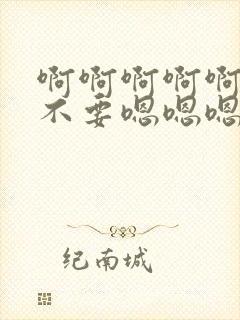 啊啊啊啊啊
不要嗯嗯嗯
纪南城